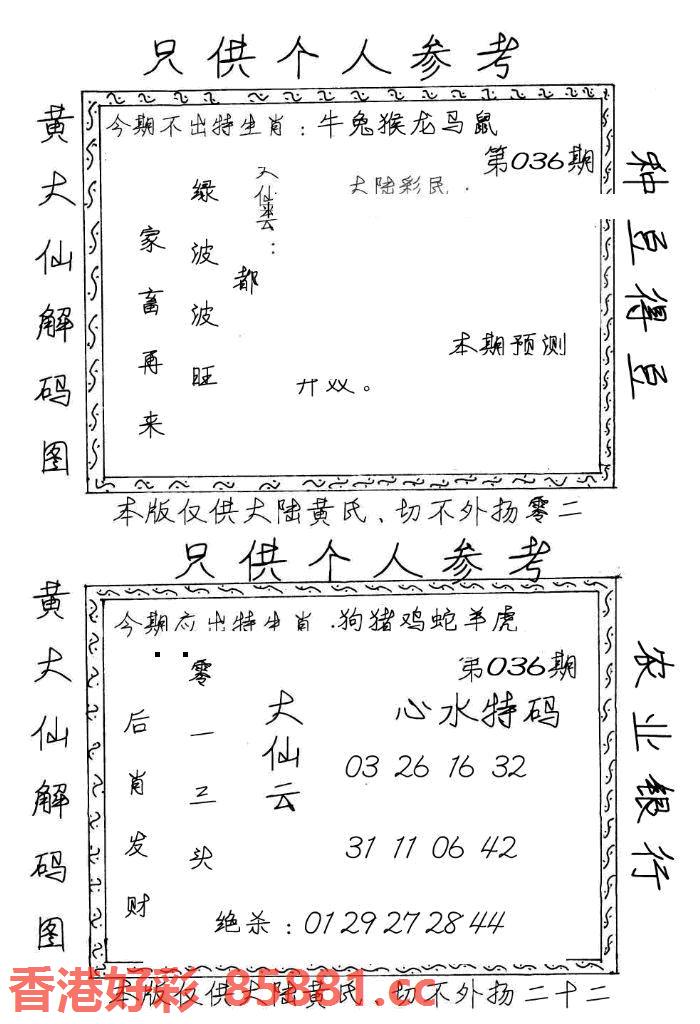 只供个人参考
黄大仙解码图
今期不出特生肖：牛兔猴龙马鼠
第036期
大陆彩民．
绿波波旺
家畜再来
都
本期预测
种豆得豆
本版仅供大陆黄氏、切不外扬零二
只供个人参考
黄大仙解码图
今期应出特生肖．狗猪鸡蛇羊虎
第036期
零一三头
后肖发财
大仙云
心水特码
03 26 16 32
31 11 06 42
绝杀：01 29 27 28 44
农业银行
本版仅供大陆黄氏、切不外扬二十二
香港好彩 85881.cc